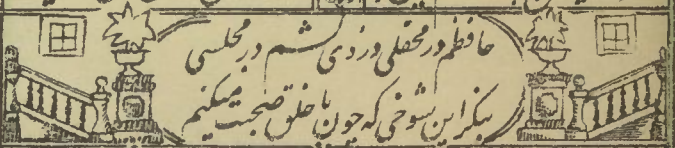 حافظم در محفلی دردی کشم در مجلسی
بنگر این شوخی که چون با خلق صحبت میکنم